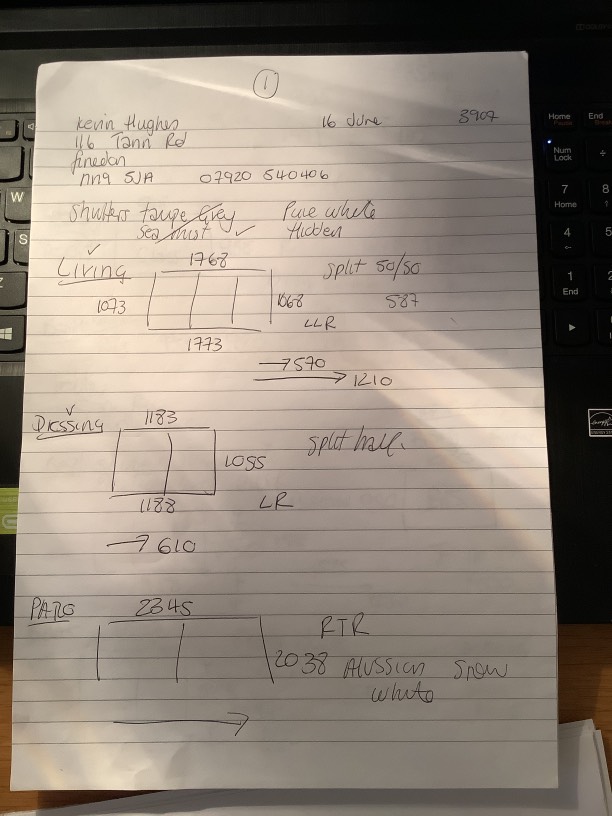 1
Kevin Hughes 16 June 3907
116 Tann Rd
finedon
nn9 5JA 07920 540406
Shutters taupe Grey Pure white
Sea mist ✓ Hidden
✓
Living 1768 split 50/50
1073 1068 587
LLR
1773
→570
→1210
✓
Dressing 1183
split half.
1055
1188 LR
→610
PATIO 2345
RTR
2038 Alussian Snow
white
Home End
Num Lock
7 8
Home
4
1
End
W
S